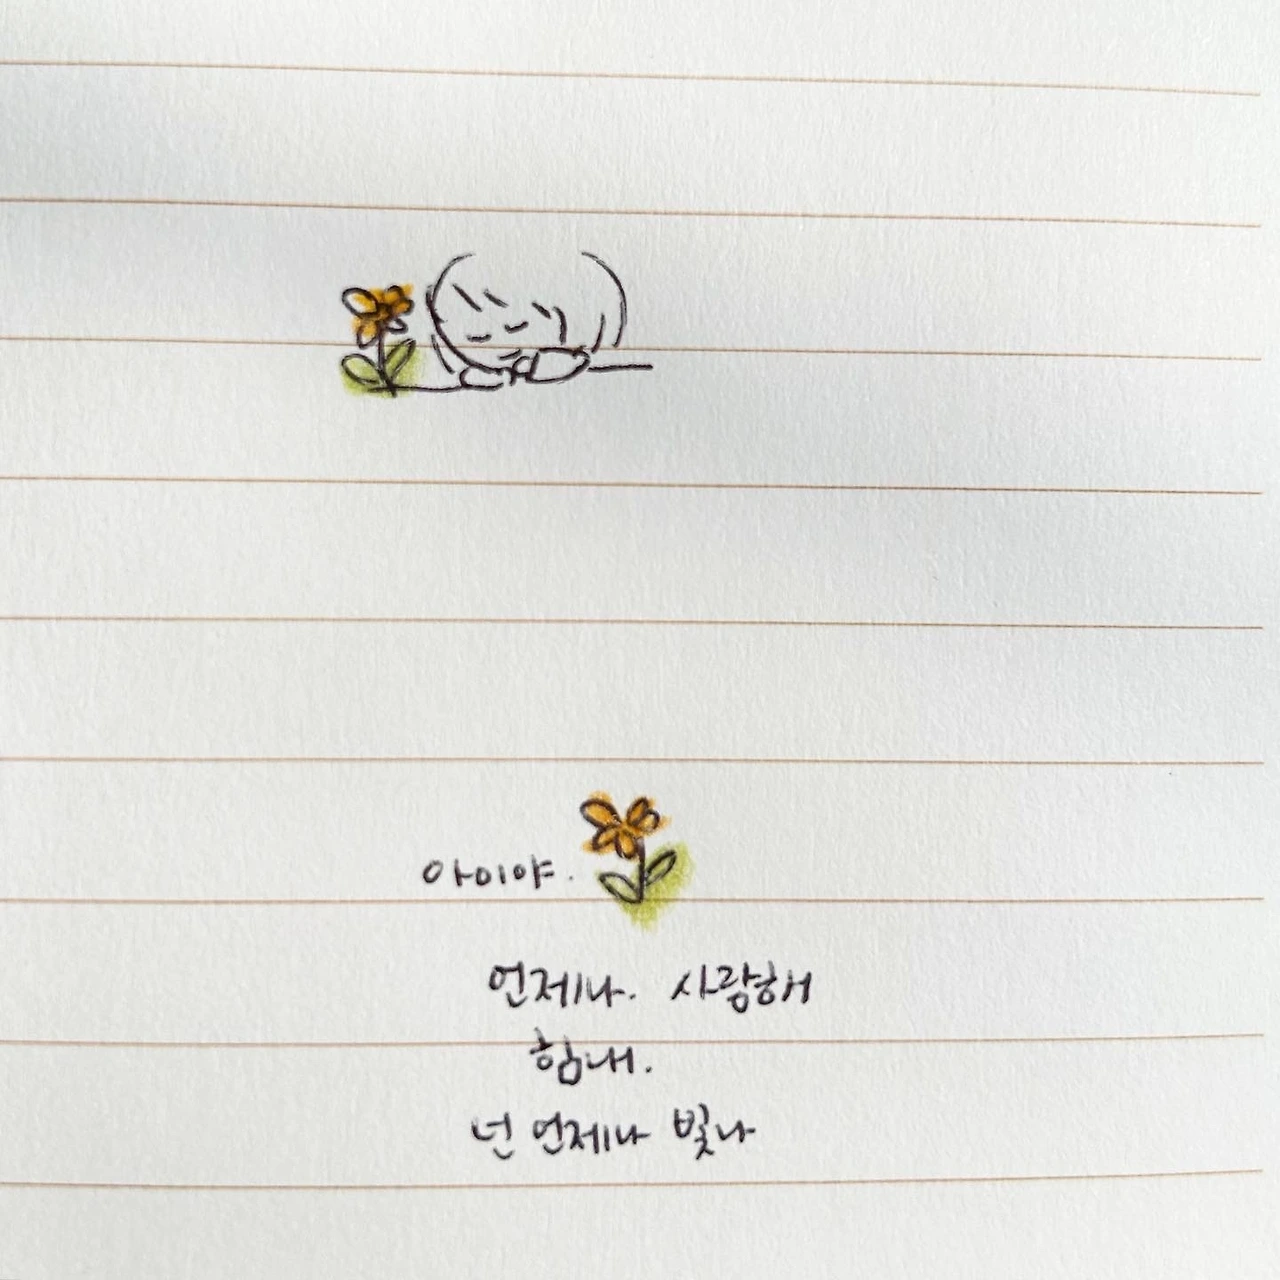 아이야.
언제나. 사랑해
힘내.
넌 언제나 빛나